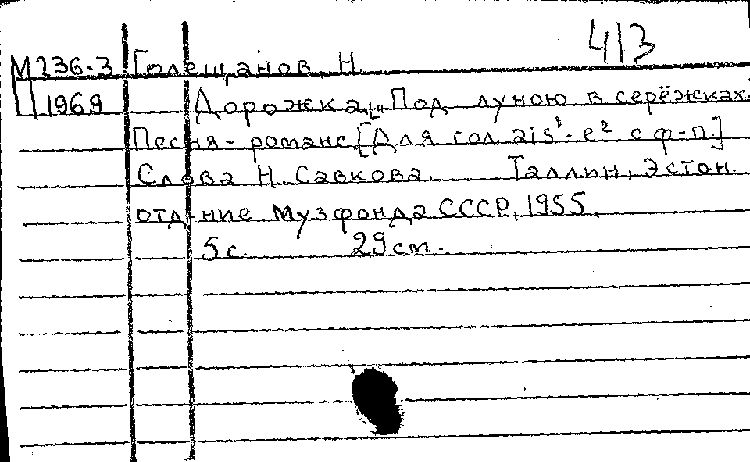 413
М236-3 Голещанов, Н.
Ц 1969 Дорожка. „Под луною в серёжках.
Песня-романс. [Для гол. ais¹-e² с ф-п]
Слова Н. Савкова. Таллин, Эстон.
отд-ние Музфонда СССР, 1955.
5 с. 29 см.